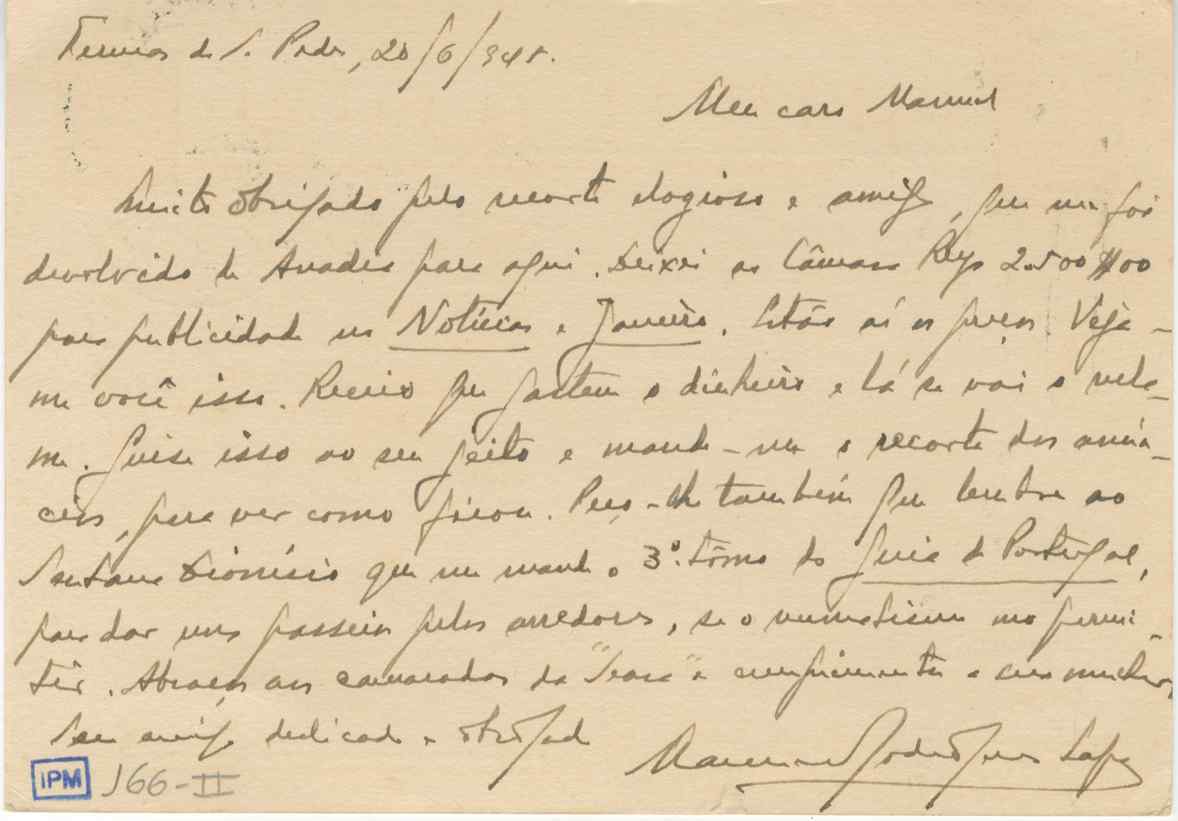 Termas de S. Pedro, 20/6/945.
Meu caro Manuel
Muito obrigado pelo recorte elogioso e amigo, que me foi
devolvido de Anadia para aqui. Deixei ao Câmara Reys 2.500$00
para publicidade no Notícias e Janeiro. Estão aí os preços. Veja-
me você isso. Receio que gastem o dinheiro e lá se vai o recla-
mo. Guise isso ao seu jeito e mande-me o recorte dos anún-
cios, para ver como ficou. Peço-lhe também que lembre ao
Santana Dionísio que me mande o 3º. tômo do Guia de Portugal,
para dar uns passeios pelos arredores, se o reumatismo mo permi-
tir. Abraços aos camaradas da "Seara" e cumprimentos a sua mulher,
Seu amigo dedicado e obrigado
Rodrigues Lapa
IPM 166-II